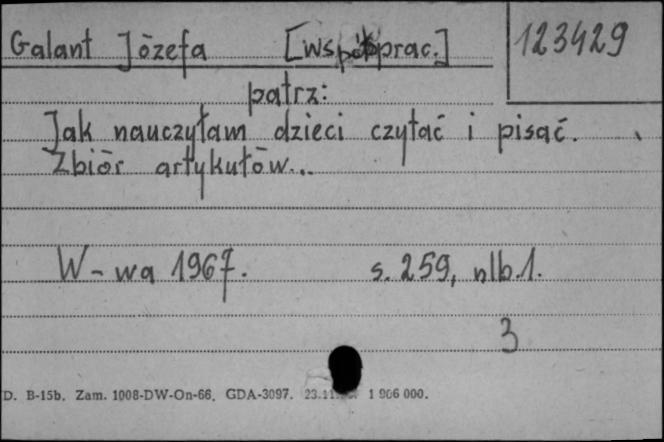 Galant Józefa [współprac.] 123429
patrz:
Jak nauczyłam dzieci czytać i pisać.
Zbiór artykułów...
W-wa 1967. s. 259, nlb. 1.
3
D. B-15b. Zam. 1008-DW-On-66. GDA-3097. 1 906 000.